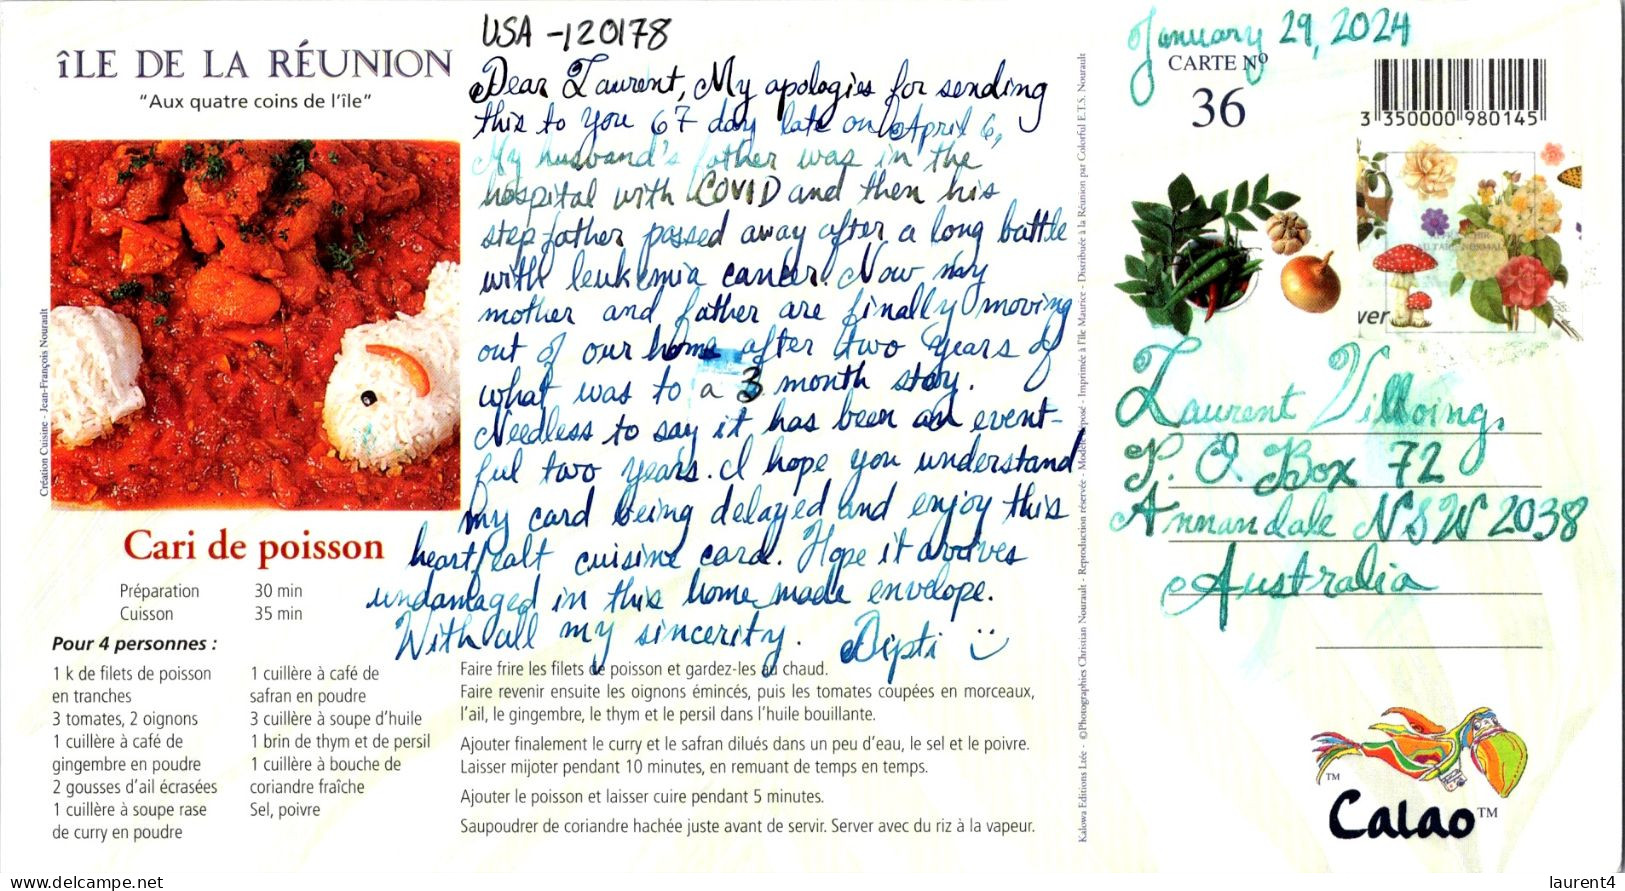 îLE DE LA RÉUNION
"Aux quatre coins de l'île"
Création Cuisine - Jean-François Nourault
Cari de poisson
Préparation 30 min
Cuisson 35 min
Pour 4 personnes :
1 k de filets de poisson
en tranches
3 tomates, 2 oignons
1 cuillère à café de
gingembre en poudre
2 gousses d'ail écrasées
1 cuillère à soupe rase
de curry en poudre
1 cuillère à café de
safran en poudre
3 cuillère à soupe d'huile
1 brin de thym et de persil
1 cuillère à bouche de
coriandre fraîche
Sel, poivre
USA -120178
Dear Laurent, My apologies for sending
this to you 67 day late on April 6,
My husvand's father was in the
hospital with COVID and then his
step father passed away after a long battle
with leukemia cancer. Now my
mother and father are finally moving
out of our home after two years of
what was to a 3 month stay.
Needless to say it has been an event-
ful two years. I hope you understand
my card being delayed and enjoy this
heartfealt cuisine card. Hope it arrives
undamaged in this home made envelope.
With all my sincerity. Dipti :)
Faire frire les filets de poisson et gardez-les au chaud.
Faire revenir ensuite les oignons émincés, puis les tomates coupées en morceaux,
l'ail, le gingembre, le thym et le persil dans l'huile bouillante.
Ajouter finalement le curry et le safran dilués dans un peu d'eau, le sel et le poivre.
Laisser mijoter pendant 10 minutes, en remuant de temps en temps.
Ajouter le poisson et laisser cuire pendant 5 minutes.
Saupoudrer de coriandre hachée juste avant de servir. Server avec du riz à la vapeur.
Kalowa Editions Ltée - ©Photographies Christian Nourault - Reproduction réservée - Modèle déposé - Imprimée à l'Ile Maurice - Distribuée à la Réunion par Colorful E.T.S. Nourault
January 29, 2024
CARTE Nº
36
3 350000 980145
ver
Laurent Villoing,
P. O Box 72
Annandale NSW 2038
Australia
Calao™
™
laurent4
delcampe.net